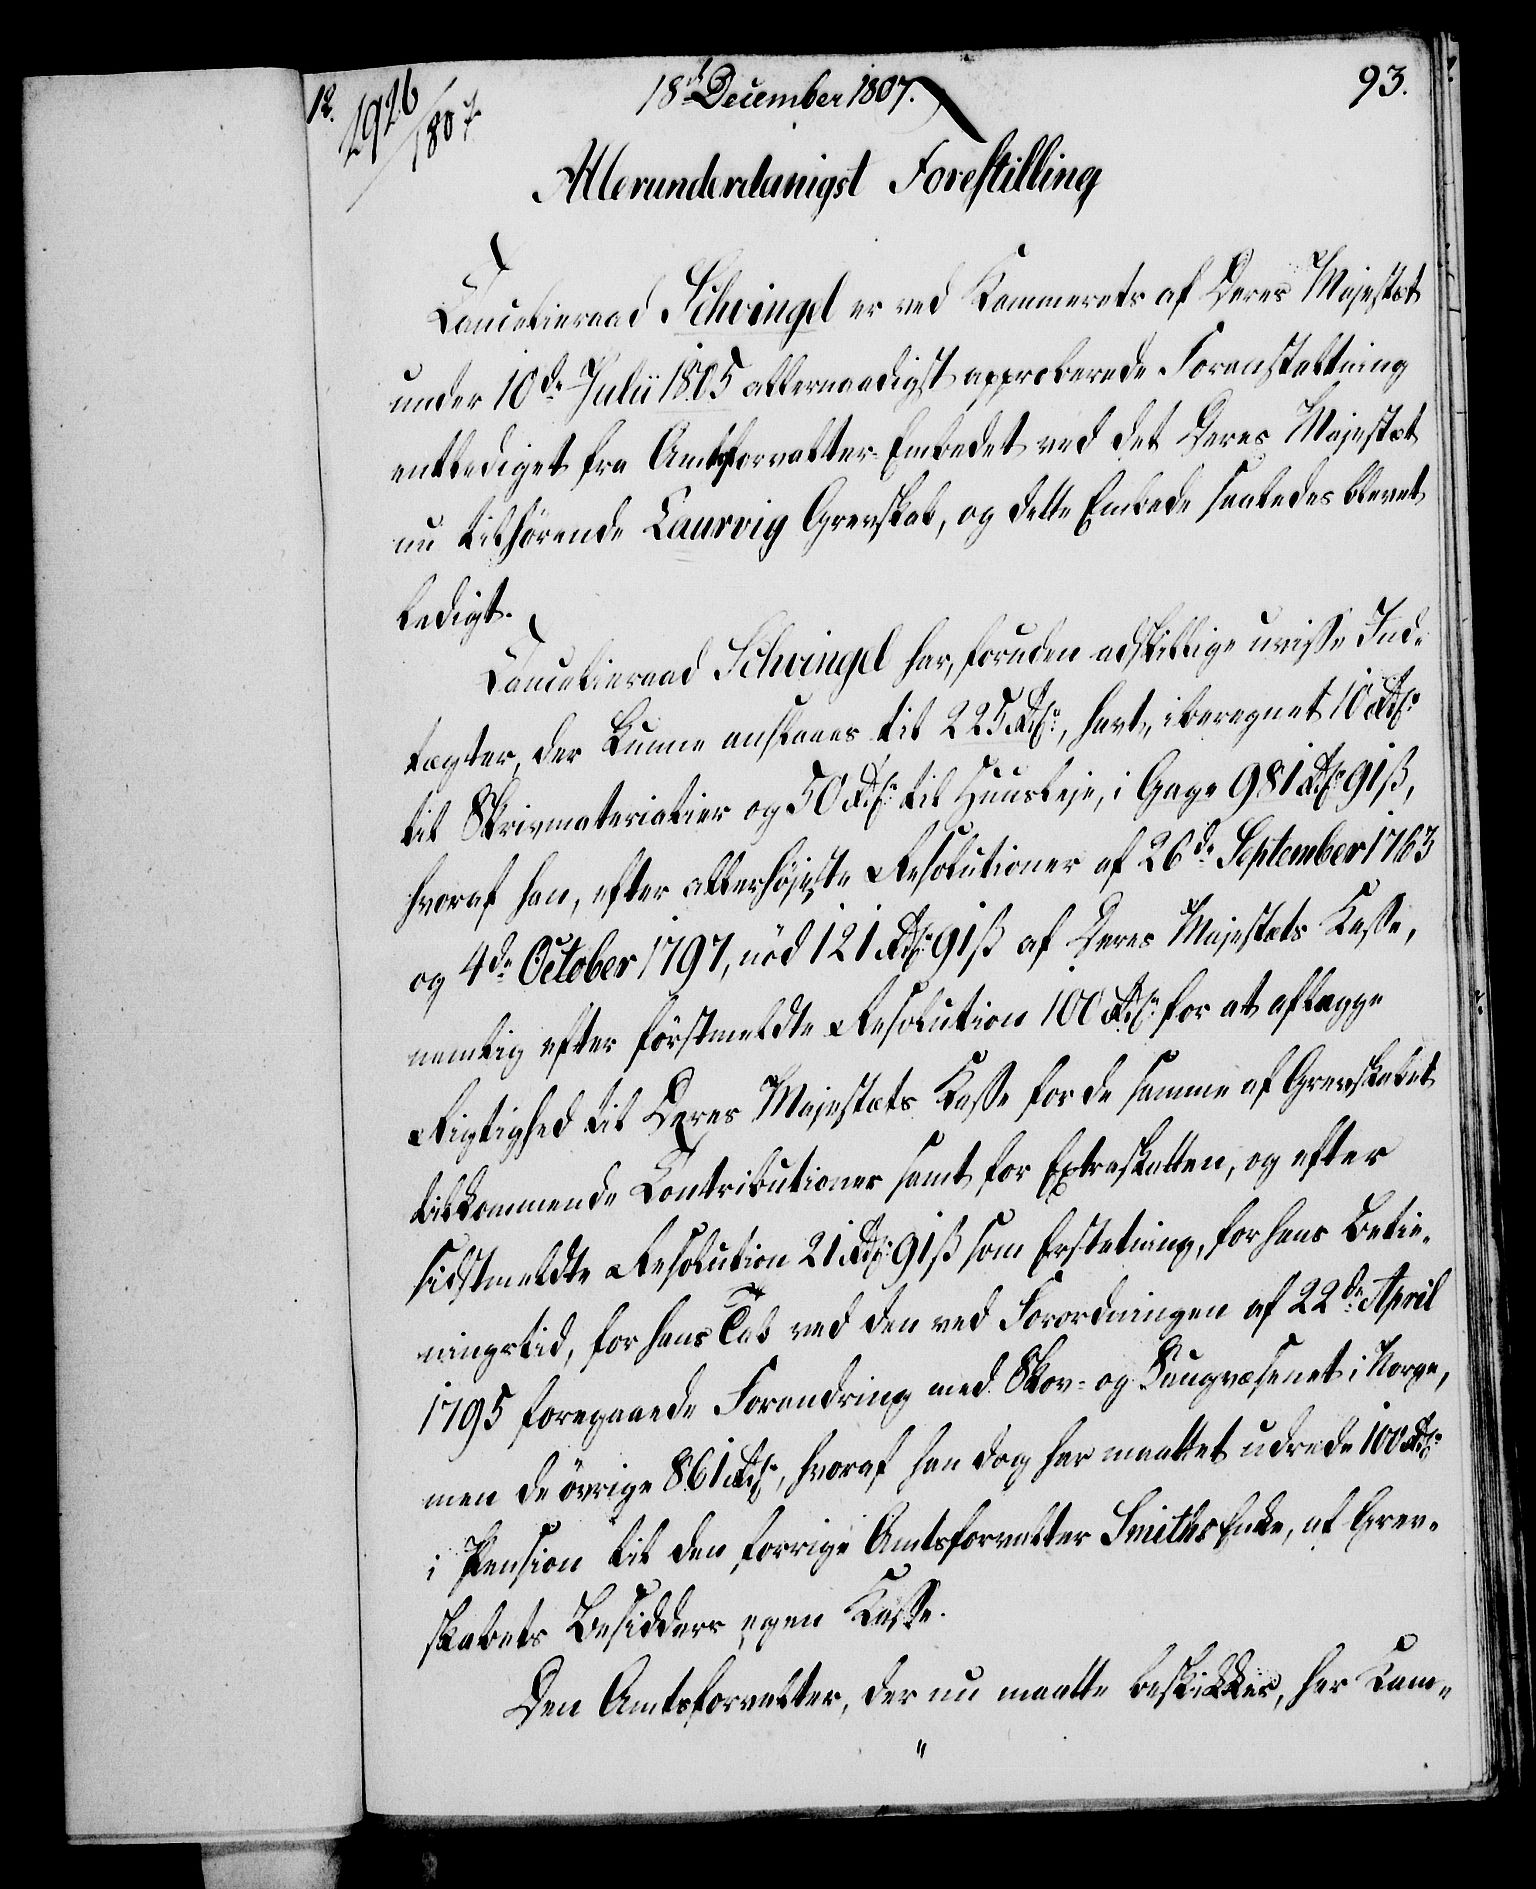 18d December 1807.
93.
12.
1926/1807
Allerunderdanigst Forestilling
Cancelieraad Schvingel er ved Kammerets af Deres Majestæt
under 10de Julii 1805 allernaadigst approberede Foranstaltning
entlediget fra Amtsforvalter-Embedet ved det Deres Majestæt
nu tilhørende Laurvig Grevskab, og dette Embede saaledes blevet
ledigt.
Cancelieraad Schvingel har, foruden adskillige uvisse Ind-
tægter, der kunne anslaaes til 225 Rdlr, havt, iberegnet 10 Rdlr
til Skrivmaterialier og 50 Rdlr til Huusleje, i Gage 981 Rdlr 91 ß,
hvoraf han, efter allerhøjeste Resolutioner af 26de September 1763
og 4de October 1797, nød 121 Rdlr 91 ß af Deres Majestæts Kasse,
nemlig efter førstmeldte Resolution 100 Rdlr for at aflægge
Rigtighed til Deres Majestæts Kasse for de samme af Grevskabet
tilkommende Contributioner samt for Extraskatten, og efter
sidstmeldte Resolution 21 Rdlr 91 ß som Erstatning, for hans Betie-
ningstid, for hans Tab ved den ved Forordningen af 22de April
1795 foregaaede Forandring med Skov- og Saugvæsenet i Norge,
men de øvrige 861 Rdlr, hvoraf han dog har maattet udrede 100 Rdlr
i Pension til den forrige Amtsforvalter Smiths Enke, af Grev-
skabets Besidders egen Kasse.
Den Amtsforvalter, der nu maatte beskikkes, har Kam-